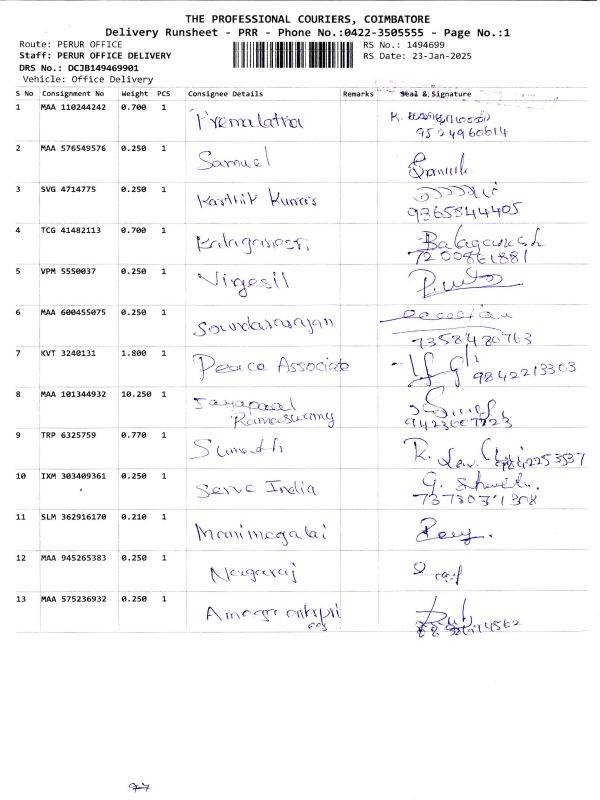 THE PROFESSIONAL COURIERS, COIMBATORE
Delivery Runsheet - PRR - Phone No.:0422-3505555 - Page No.:1
Route: PERUR OFFICE
RS No.: 1494699
Staff: PERUR OFFICE DELIVERY
RS Date: 23-Jan-2025
DRS No.: DCJB149469901
Vehicle: Office Delivery
S No Consignment No Weight PCS Consignee Details Remarks Seal & Signature
1 MAA 110244242 0.700 1 Premalatha
9524960614
2 MAA 576549576 0.250 1 Samuel
3 SVG 4714775 0.250 1 Karthik Kumar
9365844405
4 TCG 41482113 0.700 1 Balaganesh Balaganesh
7200861881
5 VPM 5550037 0.250 1 Virgesil
6 MAA 600455075 0.250 1 Soundararajan
7358480763
7 KVT 3240131 1.800 1 Peace Associate
9842213303
8 MAA 101344932 10.250 1 Jayapaal
Ramaswamy
9 TRP 6325759 0.770 1
10 IXM 303409361 0.250 1 Serve India
7373037308
11 SLM 362916170 0.210 1 Manimegalai
12 MAA 945265383 0.250 1 Nagaraj
13 MAA 575236932 0.250 1
97